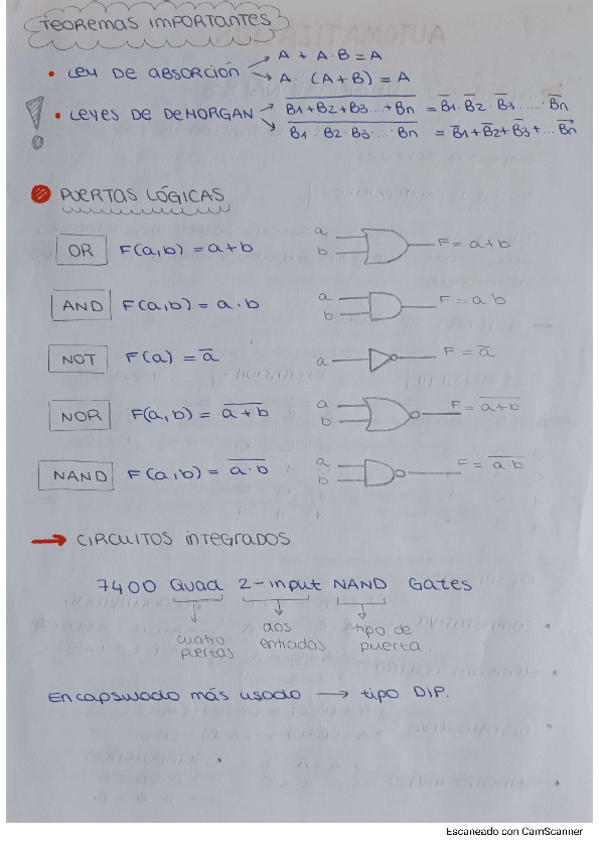 TEOREMAS IMPORTANTES
A + A·B = A
• LEY DE ABSORCIÓN
A·(A+B) = A
• LEYES DE DEMORGAN
$\overline{B1+B2+B3...+Bn} = \overline{B}1·\overline{B}2·\overline{B}3·....·\overline{B}n$
$\overline{B1·B2·B3·...·Bn} = \overline{B}1+\overline{B}2+\overline{B}3+...\overline{B}n$
PUERTAS LÓGICAS
OR F(a,b) = a+b a b F = a+b
AND F(a,b) = a·b a b F = a·b
NOT F(a) = $\overline{a}$ a F = $\overline{a}$
NOR F(a,b) = $\overline{a+b}$ a b F = $\overline{a+b}$
NAND F(a,b) = $\overline{a·b}$ a b F = $\overline{a·b}$
→ CIRCUITOS INTEGRADOS
7400 Quad 2-input NAND Gates
cuatro puertas
dos entradas
tipo de puerta.
Encapsulado más usado → tipo DIP.
Escaneado con CamScanner